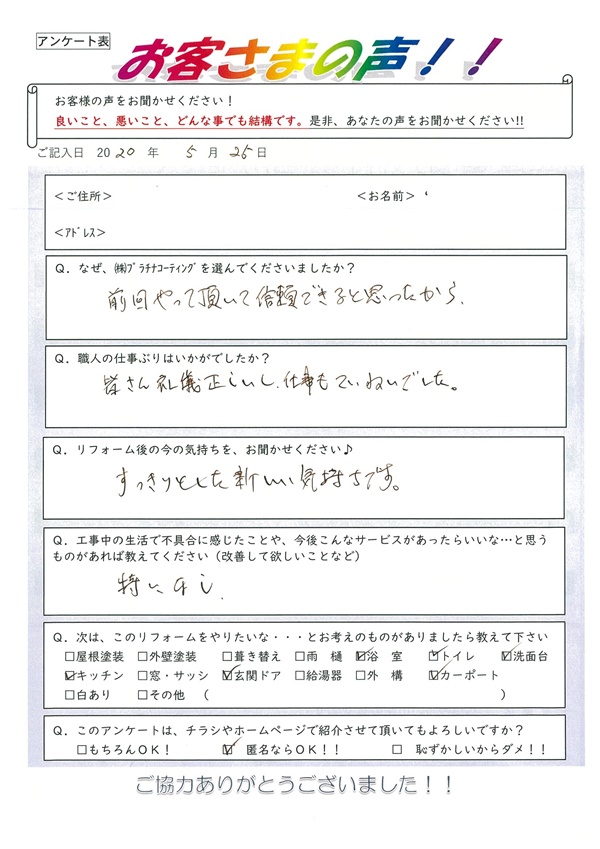 アンケート表
お客さまの声！！
お客様の声をお聞かせください！
良いこと、悪いこと、どんな事でも結構です。是非、あなたの声をお聞かせください!!
ご記入日 2020 年 5月 25日
＜ご住所＞ ＜お名前＞
＜ｱﾄﾞﾚｽ＞
Q．なぜ、㈱ﾌﾟﾗﾁﾅｺｰﾃｨﾝｸﾞを選んでくださいましたか？
前回やって頂いて信頼できると思ったから.
Q．職人の仕事ぶりはいかがでしたか？
皆さん礼儀正しいし、仕事もていねいでした。
Q．リフォーム後の今の気持ちを、お聞かせください♪
すっきりとした新しい気持ちです。
Q．工事中の生活で不具合に感じたことや、今後こんなサービスがあったらいいな…と思う
ものがあれば教えてください（改善して欲しいことなど）
特になし.
Q．次は、このリフォームをやりたいな・・・とお考えのものがありましたら教えて下さい
□屋根塗装 □外壁塗装 □葺き替え □雨 樋 ☑浴 室 ☑トイレ ☑洗面台
☑キッチン □窓・サッシ ☑玄関ドア □給湯器 □外 構 ☑カーポート
□白あり □その他 （ ）
Q．このアンケートは、チラシやホームページで紹介させて頂いてもよろしいですか？
□もちろんOK！ ☑ 匿名ならOK！！ □ 恥ずかしいからダメ！！
ご協力ありがとうございました！！